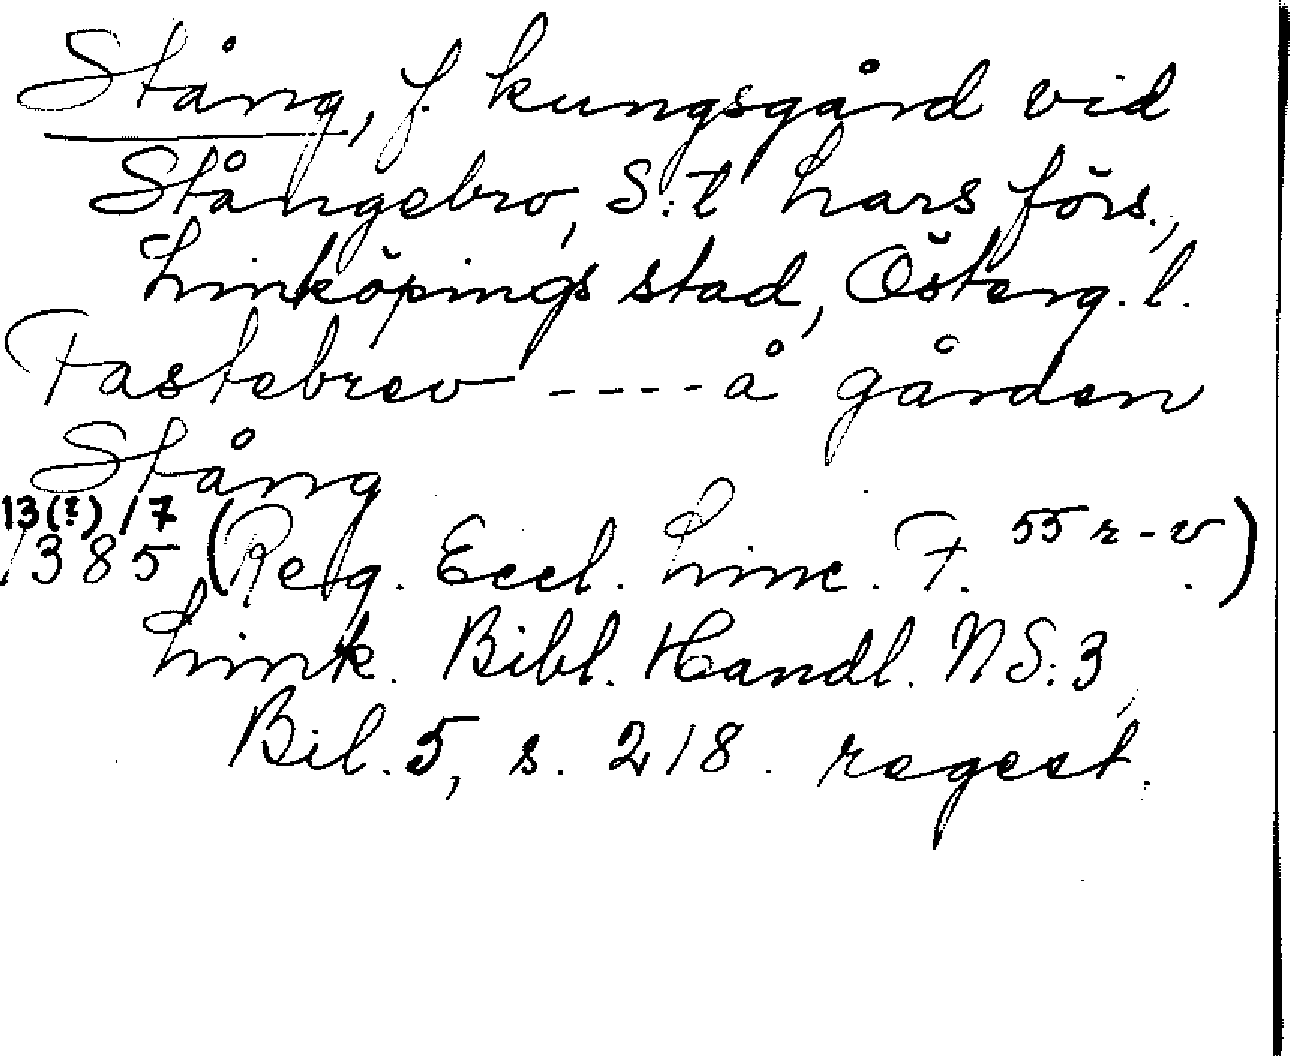 Stång, f. kungsgård vid
Stångebro, S:t Lars förs.,
Linköpings stad, Österg. l.
Fastebrev ---- å gården
Stång
13(?)/7
1385 (Reg. Eccl. Linc. F. 55 r-v.)
Link. Bibl. Handl. NS:3,
Bil. 5, s. 218. regest.